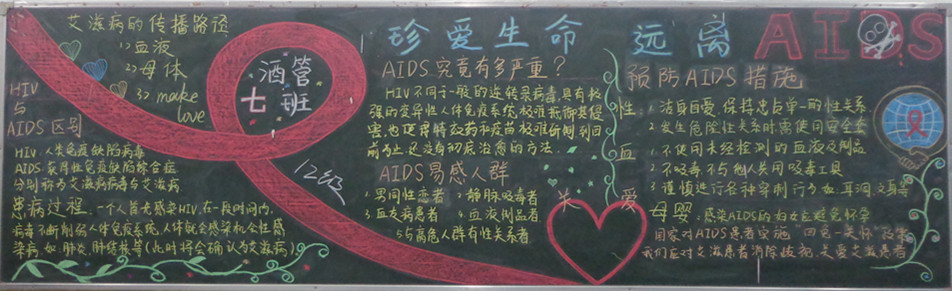 艾滋病的传播路径
1>血液
2>母体
3>make
love
HIV
与
AIDS区别
HIV:人类免疫缺陷病毒
AIDS:获得性免疫缺陷综合症
分别称为艾滋病病毒与艾滋病
患病过程:一个人首先感染HIV,在一段时间内,
病毒不断削弱人体免疫系统,人体就会感染机会性感
染病,如:肺炎 肺结核等(此时将会确认为艾滋病)
酒管
七班
12级
珍爱生命 远离AIDS
AIDS究竟有多严重?
HIV不同于一般的逆转录病毒,具有极
强的变异性,人体免疫系统极难抵御其侵
害,也使得特效药和疫苗极难研制,到目
前为止还没有彻底治愈的方法.
AIDS易感人群
1.男同性恋者 2.静脉吸毒者
3.血友病患者 4.血液制品者
5.与高危人群有性关系者
关爱
预防AIDS措施
性
1.洁身自爱,保持忠贞单一的性关系
2.发生危险性关系时需使用安全套
血
1.不使用未经检测的血液及制品
2.不吸毒,不与他人共用吸毒工具
3.谨慎进行各种穿刺行为如,耳洞,纹身等
母婴:感染AIDS的妇女应避免怀孕
国家对AIDS患者实施"四免一关怀"政策
我们应对艾滋患者消除歧视,关爱艾滋患者